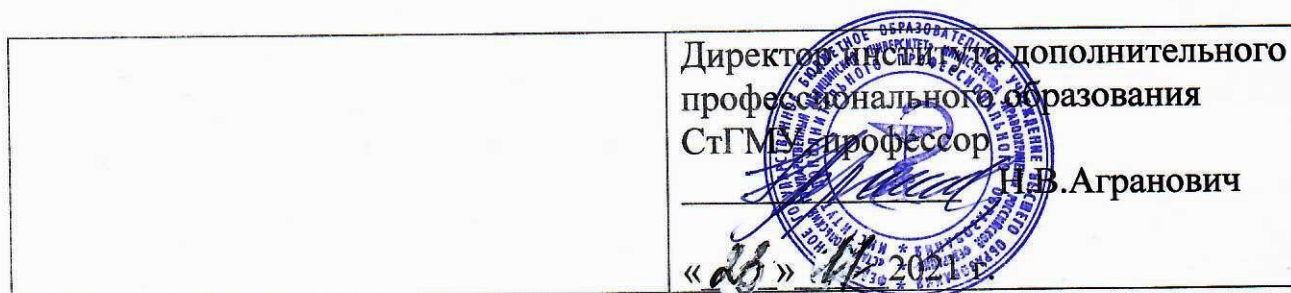 Директор института дополнительного
профессионального образования
СтГМУ, профессор
Н.В.Агранович
«23» 11 2021 г.